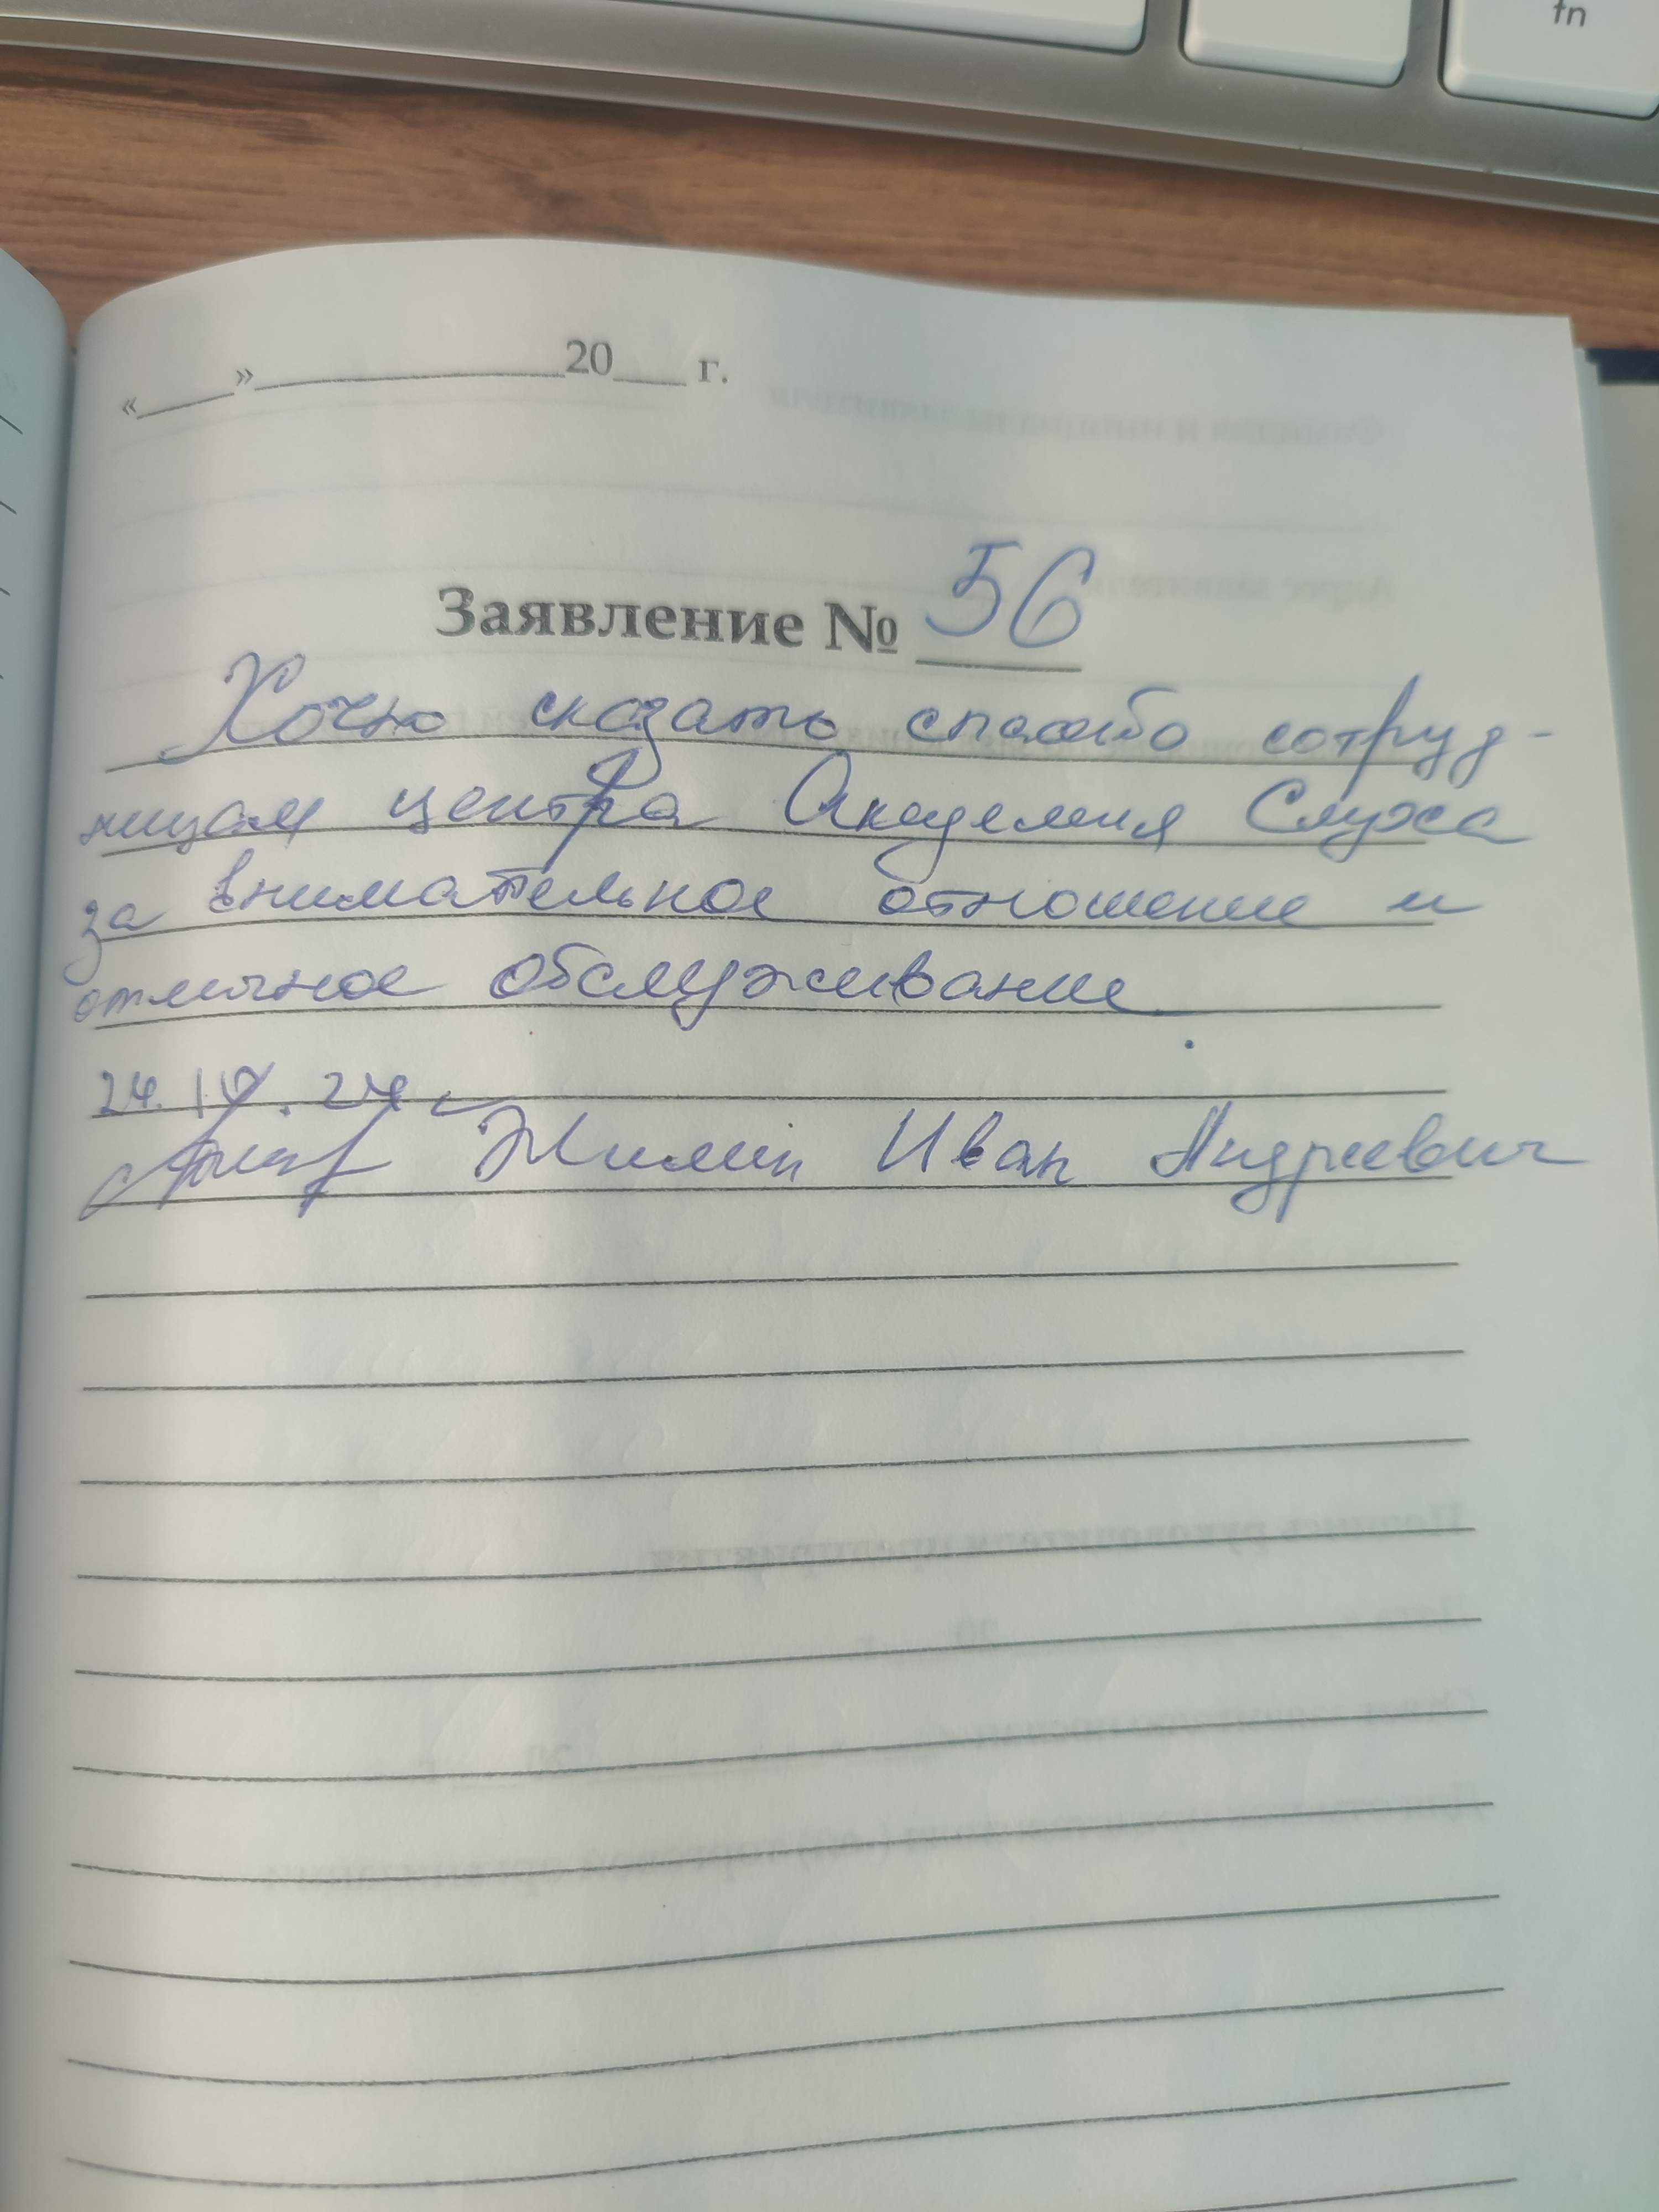 fn
«____»______________20___ г.
Заявление № 56
Хочю сказать спасибо сотруд-
ницам центра Академия Слуха
за внимательное отношение и
отличное обслуживание.
24. 24
Жилин Иван Андреевич